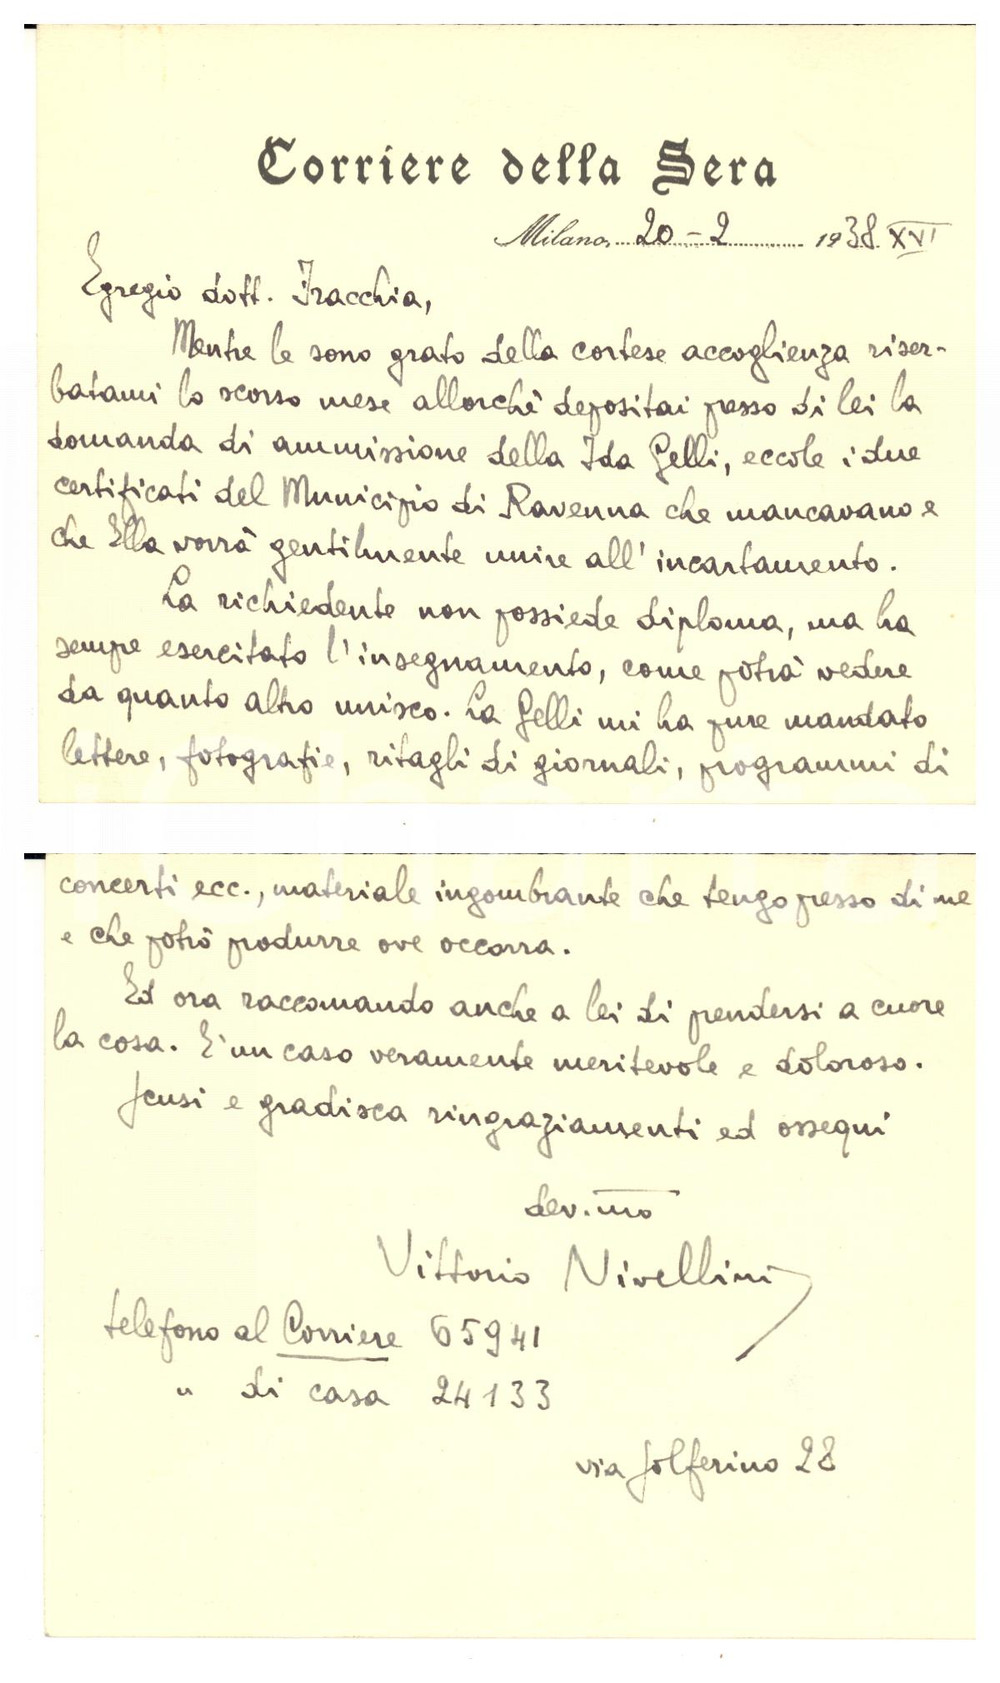 Corriere della Sera
Milano, 20-2 1938 XVI
Egregio dott. Fracchia,
Mentre le sono grato della cortese accoglienza riser-
batami lo scorso mese allorchè depositai presso di lei la
domanda di ammissione della Ida Gelli, eccole i due
certificati del Municipio di Ravenna che mancavano e
che Ella vorrà gentilmente unire all'incartamento.
La richiedente non possiede diploma, ma ha
sempre esercitato l'insegnamento, come potrà vedere
da quanto altro unisco. La Gelli mi ha pure mandato
lettere, fotografie, ritagli di giornali, programmi di
concerti ecc., materiale ingombrante che tengo presso di me
e che potrò produrre ove occorra.
Ed ora raccomando anche a lei di prendersi a cuore
la cosa. È un caso veramente meritevole e doloroso.
Scusi e gradisca ringraziamenti ed ossequi
dev.mo
Vittorio Nivellini
telefono al Corriere 65941
" di casa 24133
via Solferino 28